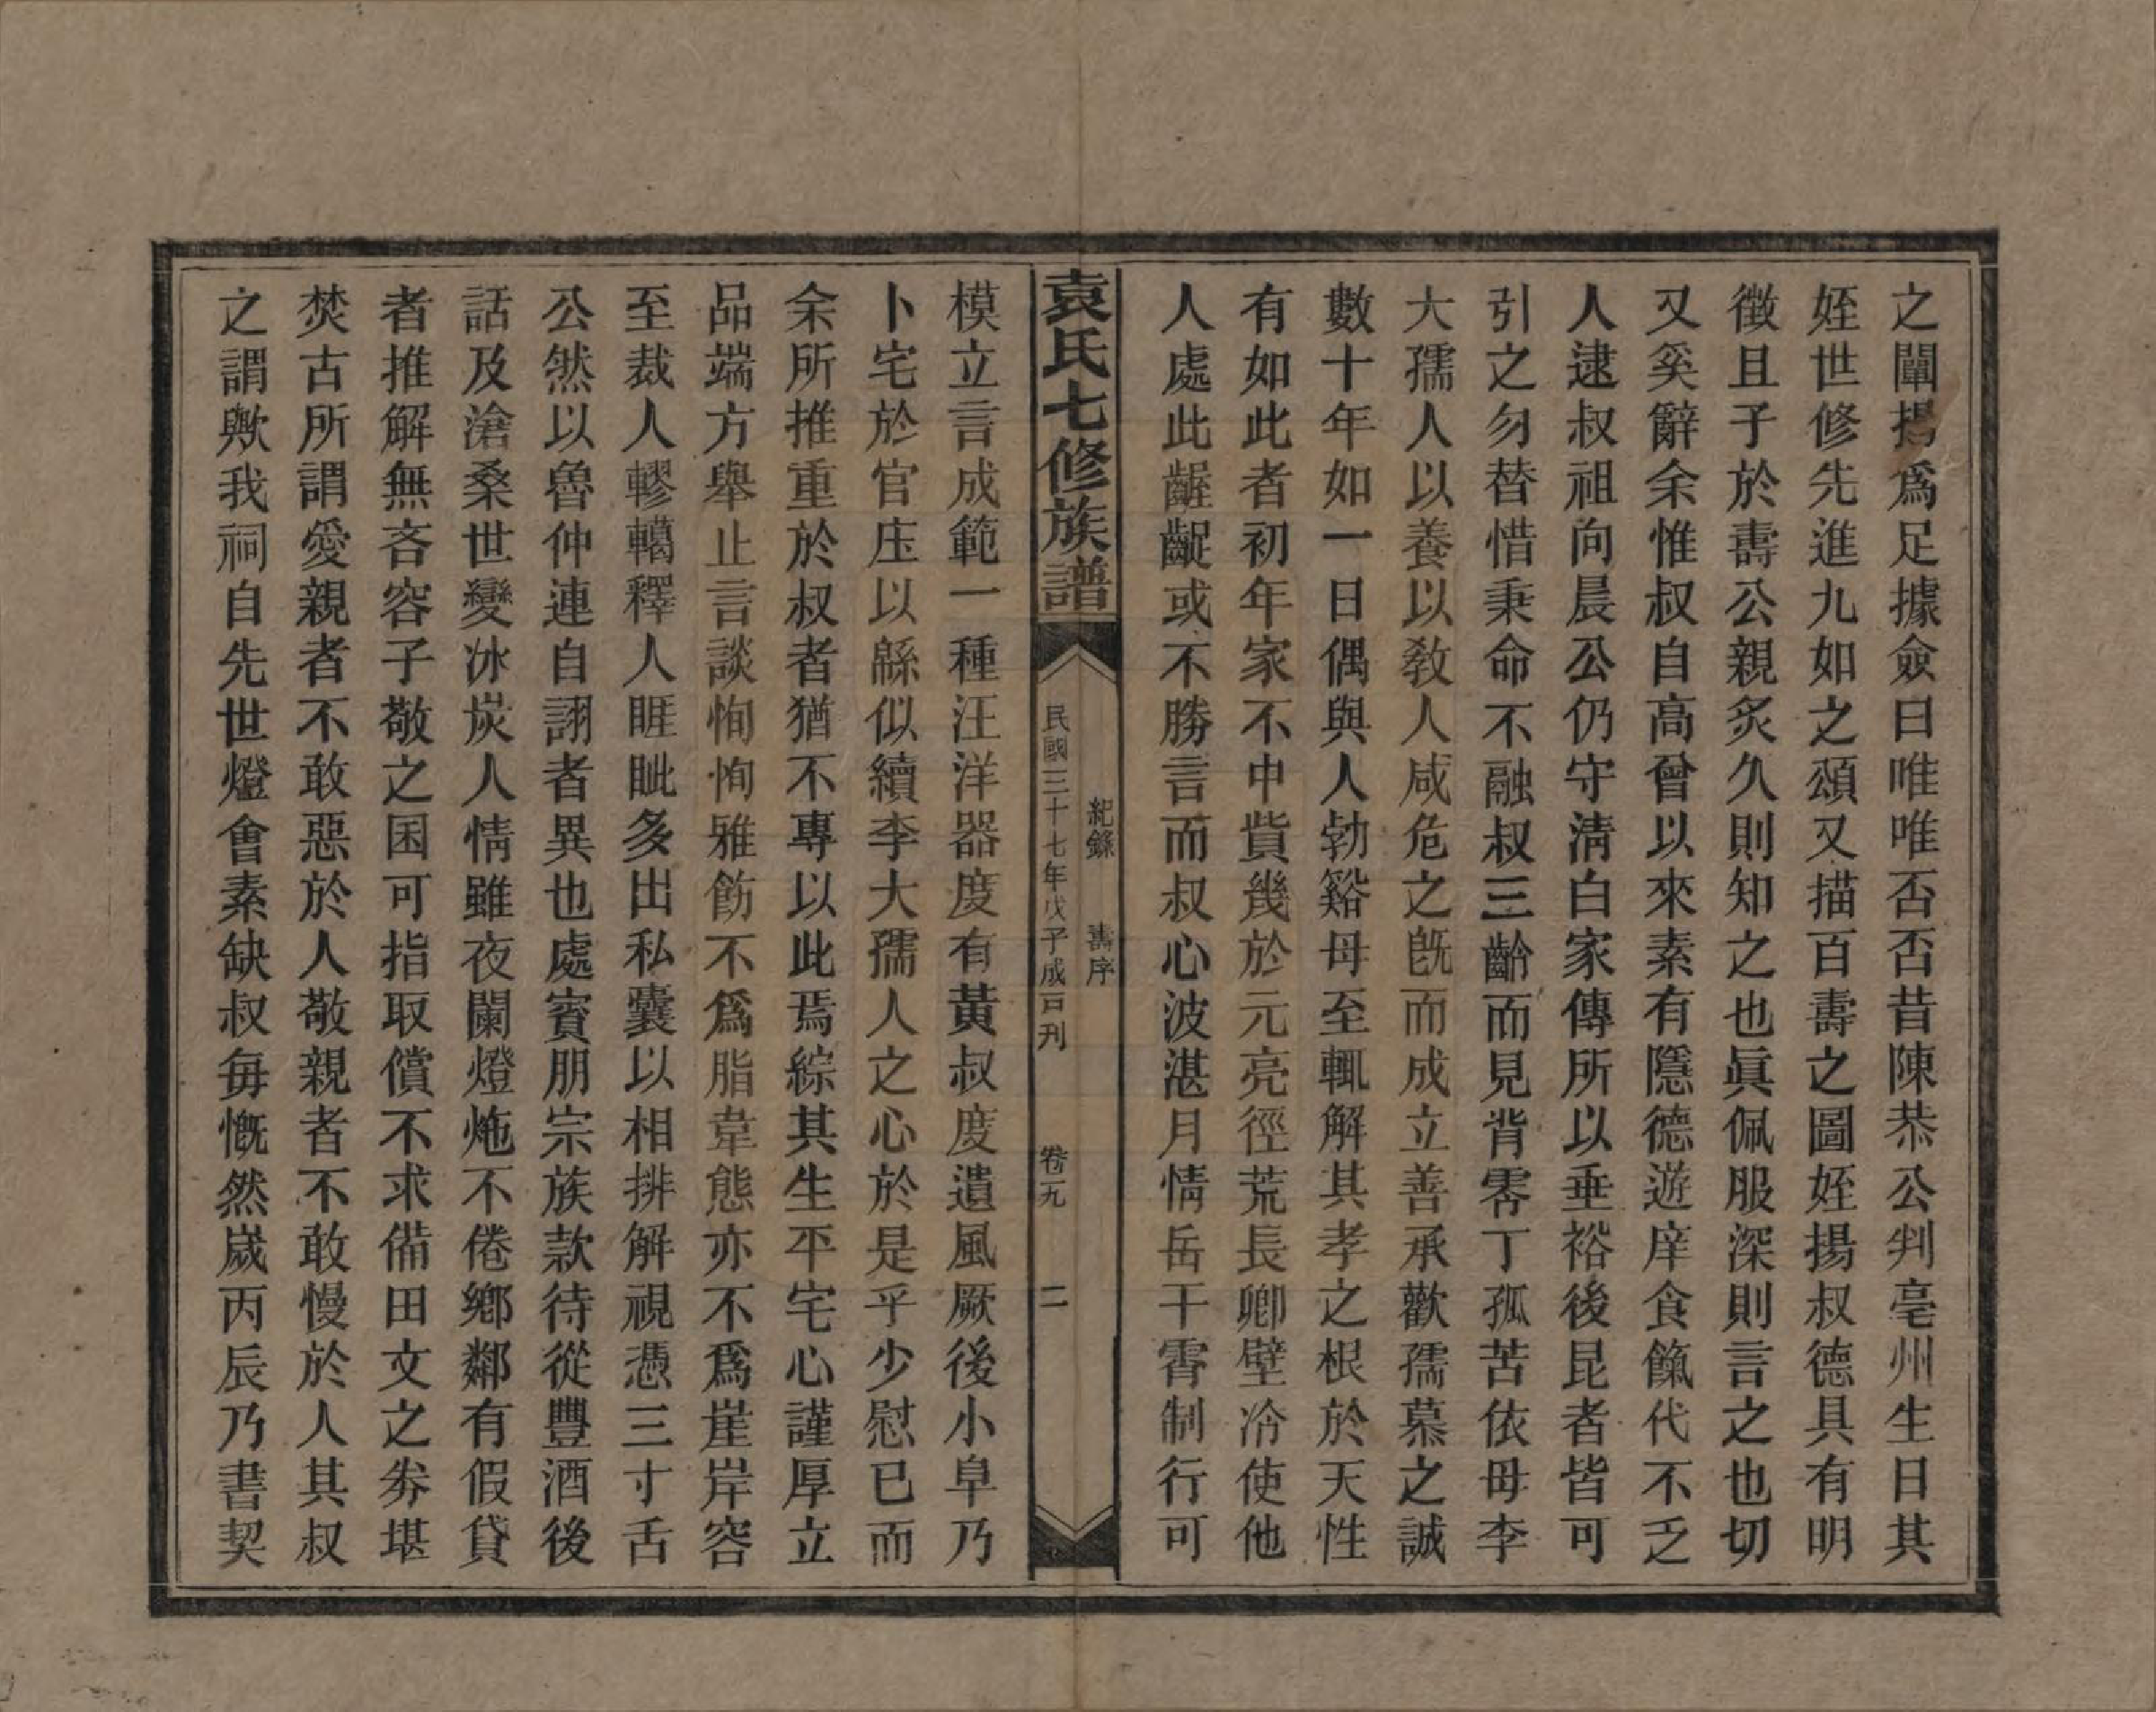 之闡揚爲足據僉曰唯唯否否昔陳恭公判亳州生日其
姪世修先進九如之頌又描百壽之圖姪揚叔德具有明
徵且子於壽公親炙久則知之也眞佩服深則言之也切
又奚辭余惟叔自高曾以來素有隱德遊庠食餼代不乏
人逮叔祖向晨公仍守淸白家傳所以垂裕後昆者皆可
引之勿替惜秉命不融叔三齡而見背零丁孤苦依毋李
大孺人以養以敎人咸危之旣而成立善承歡孺慕之誠
數十年如一日偶與人勃谿母至輒解其孝之根於天性
有如此者初年家不中貲幾於元亮徑荒長卿壁冷使他
人處此齷齪或不勝言而叔心波湛月情岳干霄制行可
袁氏七修族譜
紀錄 壽序
民國三十七年戊子成口刊 卷九 二
模立言成範一種汪洋器度有黃叔度遺風厥後小阜乃
卜宅於官庄以緜似續李大孺人之心於是乎少慰已而
余所推重於叔者猶不專以此焉綜其生平宅心謹厚立
品端方舉止言談恂恂雅飭不爲脂韋態亦不爲崖岸容
至裁人轇轕釋人睚眦多出私囊以相排解視憑三寸舌
公然以魯仲連自詡者異也處賓朋宗族款待從豐酒後
話及滄桑世變冰炭人情雖夜闌燈炧不倦鄕鄰有假貸
者推解無吝容子敬之囷可指取償不求備田文之券堪
焚古所謂愛親者不敢惡於人敬親者不敢慢於人其叔
之謂歟我祠自先世燈會素缺叔每慨然嵗丙辰乃書契